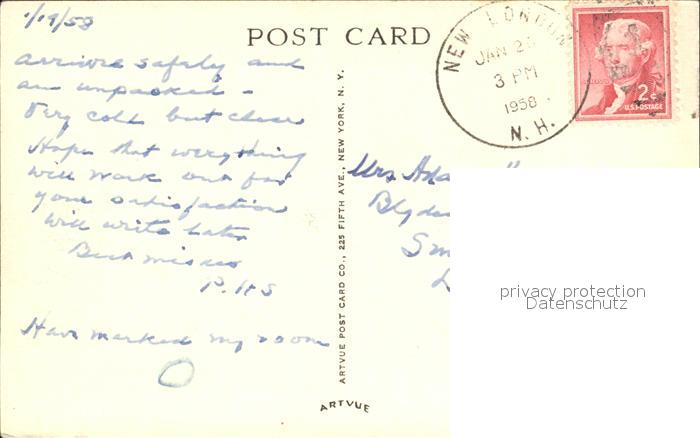 1/19/58
POST CARD
arrived safely and
am unpacked -
Very cold but clear
Hope that everything
will work out for
your satisfaction
Will write later
Best wishes
P. H S
Have marked my room
NEW LONDON
JAN 2
3 PM
1958
N. H.
2¢
U.S. POSTAGE
Mrs
privacy protection
Datenschutz
ARTVUE POST CARD CO., 225 FIFTH AVE., NEW YORK, N. Y.
ARTVUE